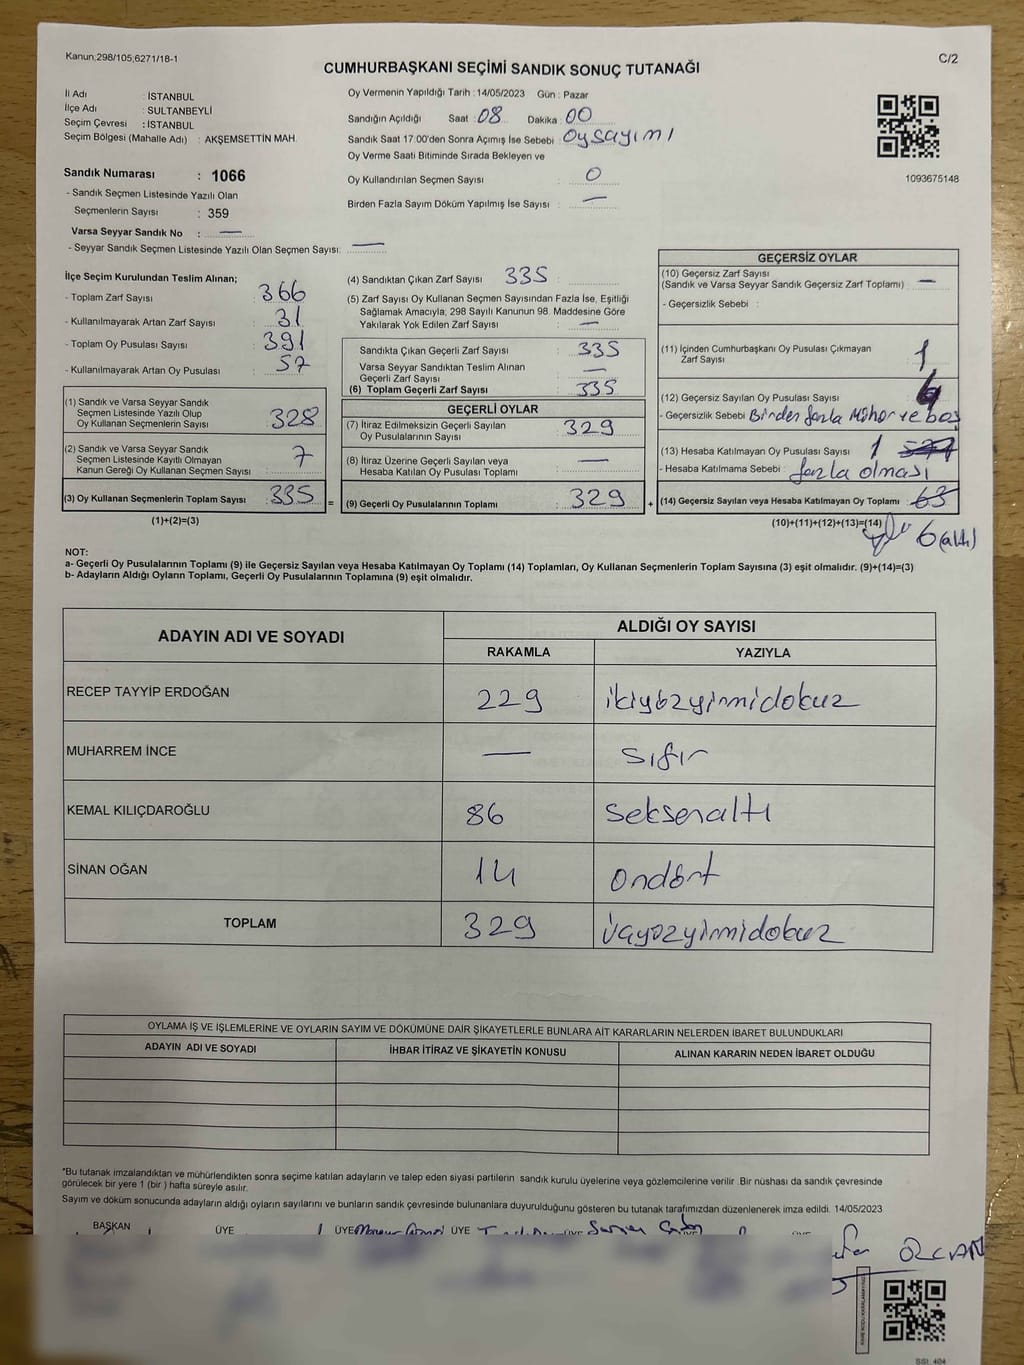 Kanun;298/105;6271/18-1
C/2
CUMHURBAŞKANI SEÇİMİ SANDIK SONUÇ TUTANAĞI
İl Adı : İSTANBUL
İlçe Adı : SULTANBEYLİ
Seçim Çevresi : İSTANBUL
Seçim Bölgesi (Mahalle Adı) : AKŞEMSETTİN MAH.
Sandık Numarası : 1066
- Sandık Seçmen Listesinde Yazılı Olan
Seçmenlerin Sayısı : 359
Varsa Seyyar Sandık No : —
- Seyyar Sandık Seçmen Listesinde Yazılı Olan Seçmen Sayısı: —
Oy Vermenin Yapıldığı Tarih : 14/05/2023 Gün : Pazar
Sandığın Açıldığı Saat : 08 Dakika : 00
Sandık Saat 17:00'den Sonra Açımış İse Sebebi : Oy sayımı
Oy Verme Saati Bitiminde Sırada Bekleyen ve
Oy Kullandırılan Seçmen Sayısı : 0
Birden Fazla Sayım Döküm Yapılmış İse Sayısı : —
1093675148
İlçe Seçim Kurulundan Teslim Alınan;
- Toplam Zarf Sayısı : 366
- Kullanılmayarak Artan Zarf Sayısı : 31
- Toplam Oy Pusulası Sayısı : 391
- Kullanılmayarak Artan Oy Pusulası : 57
(1) Sandık ve Varsa Seyyar Sandık
Seçmen Listesinde Yazılı Olup
Oy Kullanan Seçmenlerin Sayısı : 328
(2) Sandık ve Varsa Seyyar Sandık
Seçmen Listesinde Kayıtlı Olmayan
Kanun Gereği Oy Kullanan Seçmen Sayısı : 7
(3) Oy Kullanan Seçmenlerin Toplam Sayısı : 335
(1)+(2)=(3)
(4) Sandıktan Çıkan Zarf Sayısı : 335
(5) Zarf Sayısı Oy Kullanan Seçmen Sayısından Fazla İse, Eşitliği
Sağlamak Amacıyla, 298 Sayılı Kanunun 98. Maddesine Göre
Yakılarak Yok Edilen Zarf Sayısı : —
Sandıkta Çıkan Geçerli Zarf Sayısı : 335
Varsa Seyyar Sandıktan Teslim Alınan
Geçerli Zarf Sayısı : —
(6) Toplam Geçerli Zarf Sayısı : 335
GEÇERLİ OYLAR
(7) İtiraz Edilmeksizin Geçerli Sayılan
Oy Pusulalarının Sayısı : 329
(8) İtiraz Üzerine Geçerli Sayılan veya
Hesaba Katılan Oy Pusulası Toplamı : —
= (9) Geçerli Oy Pusulalarının Toplamı : 329 +
GEÇERSİZ OYLAR
(10) Geçersiz Zarf Sayısı
(Sandık ve Varsa Seyyar Sandık Geçersiz Zarf Toplamı) : —
- Geçersizlik Sebebi :
(11) İçinden Cumhurbaşkanı Oy Pusulası Çıkmayan
Zarf Sayısı : 1
(12) Geçersiz Sayılan Oy Pusulası Sayısı :
- Geçersizlik Sebebi : Birden fazla Mühür ve boş
(13) Hesaba Katılmayan Oy Pusulası Sayısı : 1
- Hesaba Katılmama Sebebi : fazla olması
(14) Geçersiz Sayılan veya Hesaba Katılmayan Oy Toplamı : 63
(10)+(11)+(12)+(13)=(14)
6 (altı)
NOT:
a- Geçerli Oy Pusulalarının Toplamı (9) ile Geçersiz Sayılan veya Hesaba Katılmayan Oy Toplamı (14) Toplamları, Oy Kullanan Seçmenlerin Toplam Sayısına (3) eşit olmalıdır. (9)+(14)=(3)
b- Adayların Aldığı Oyların Toplamı, Geçerli Oy Pusulalarının Toplamına (9) eşit olmalıdır.
ADAYIN ADI VE SOYADI
ALDIĞI OY SAYISI
RAKAMLA YAZIYLA
RECEP TAYYİP ERDOĞAN 229 ikiyüzyirmidokuz
MUHARREM İNCE — sıfır
KEMAL KILIÇDAROĞLU 86 seksenaltı
SİNAN OĞAN 14 ondört
TOPLAM 329 üçyüzyirmidokuz
OYLAMA İŞ VE İŞLEMLERİNE VE OYLARIN SAYIM VE DÖKÜMÜNE DAİR ŞİKAYETLERLE BUNLARA AİT KARARLARIN NELERDEN İBARET BULUNDUKLARI
ADAYIN ADI VE SOYADI İHBAR İTİRAZ VE ŞİKAYETİN KONUSU ALINAN KARARIN NEDEN İBARET OLDUĞU
*Bu tutanak imzalandıktan ve mühürlendikten sonra seçime katılan adayların ve talep eden siyasi partilerin sandık kurulu üyelerine veya gözlemcilerine verilir .Bir nüshası da sandık çevresinde
görülecek bir yere 1 (bir ) hafta süreyle asılır.
Sayım ve döküm sonucunda adayların aldığı oyların sayılarını ve bunların sandık çevresinde bulunanlara duyurulduğunu gösteren bu tutanak tarafımızdan düzenlenerek imza edildi. 14/05/2023
BAŞKAN ÜYE ÜYE ÜYE ÜYE
ÖZCAN
KARE KODU KARALAMAYINIZ
SSI: 404